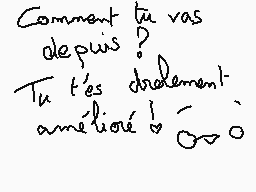 Comment tu vas
depuis ?
Tu t'es drolement
amélioré !